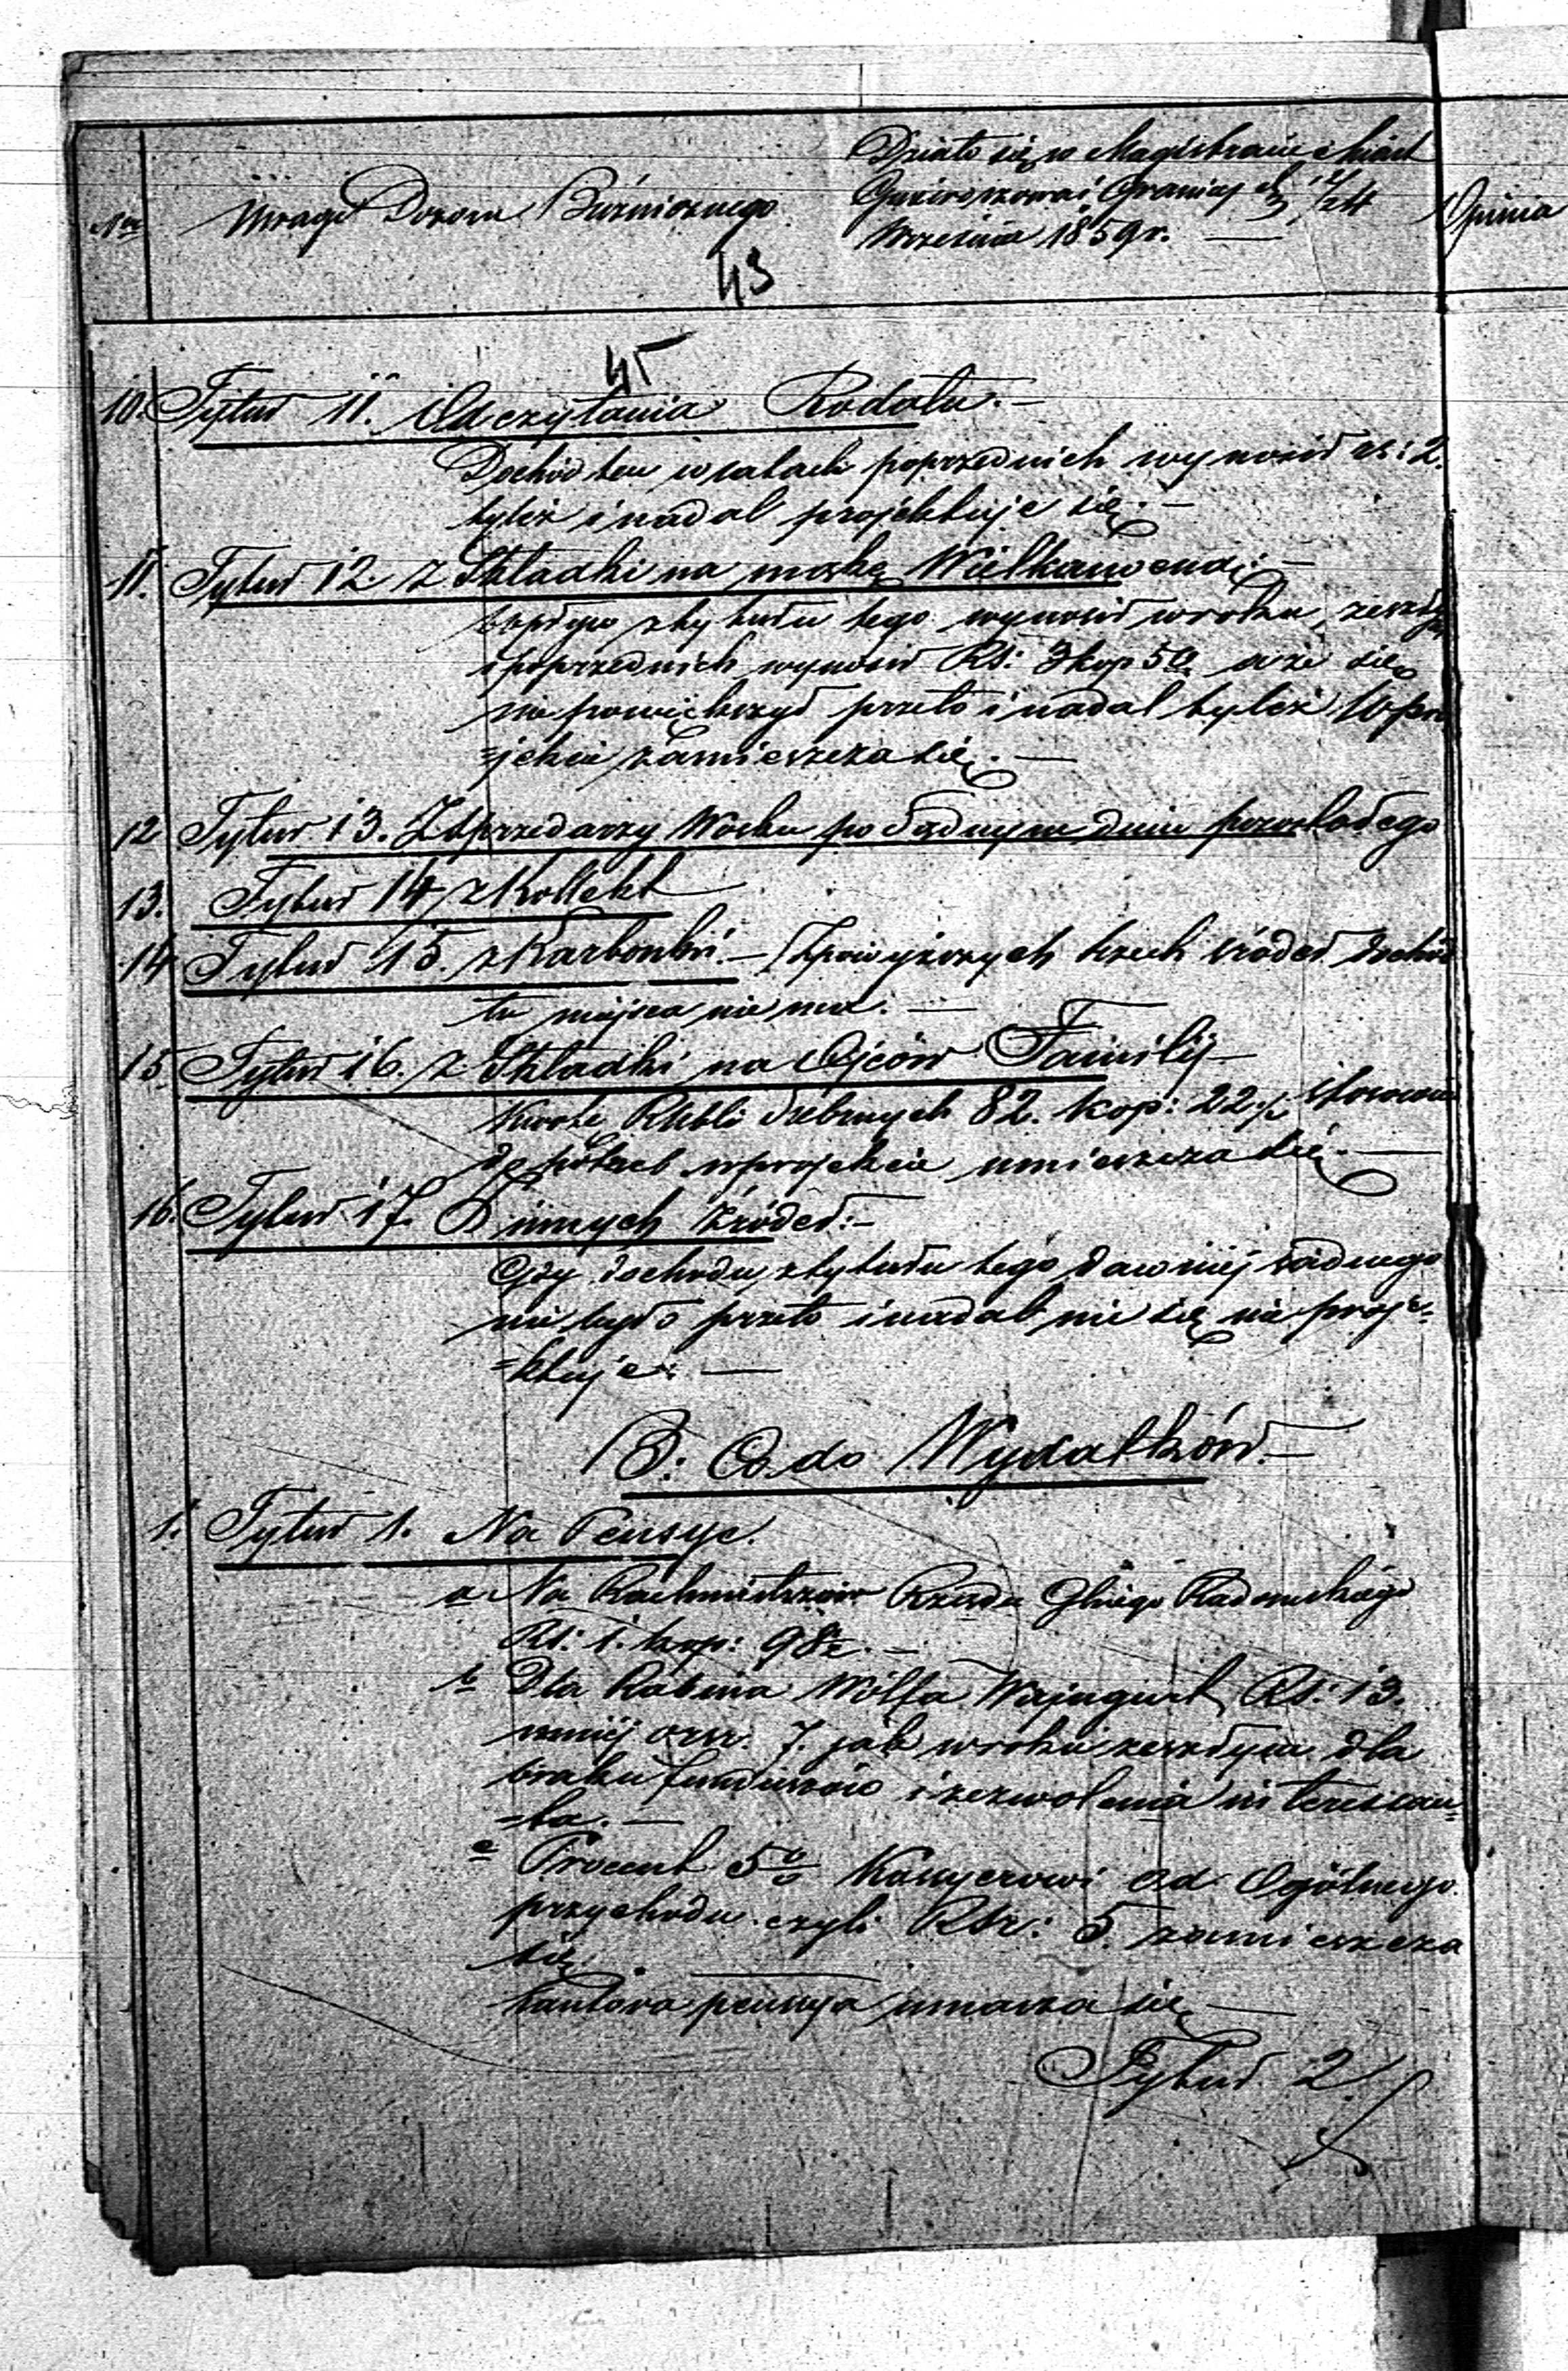 Nro
Uwagi Dozoru Bóźniczego
Działo się w Magistracie Miast
Gniewoszowa i Granicy d. 12/24
Września 1859 r. —
Opinia
43
45
10. Tytuł 11. Od czytania Rodału. —
Dochód ten w latach poprzednich wynosił rs: 2.
tyleż i nadal projektuje się. —
11. Tytuł 12. z Składki na mąkę Wielkanocną: —
wpływ z tytułu tego wynosił w roku zeszłym
i poprzednich wynosił Rs: 3 kop 50 a że się
nie powiększył przeto i nadal tyleż w pro
=jekcie zamieszcza się. —
12 Tytuł 13. Z Sprzedaży Wosku po Sądnym dniu pozostałego
13. Tytuł 14 z Kollekt
14 Tytuł 15. z Karbonki. — Z powyższych trzech źródeł dochód
tu miejsca nie ma. —
15 Tytuł 16. z Składki na Ojców Familij —
Kwotę Rubli Srebrnych 82. kop: 22 ½ stosownie
do potrzeb w projekcie umieszcza się. —
16. Tytuł 17. Z innych źródeł: —
Gdy dochodu z tytułu tego dawniej żadnego
nie było przeto i nadal nie się nie proje=
=ktuje: —
B: Co do Wydatków. —
1. Tytuł 1. Na Pensye.
a Na Rachmistrzów Rządu Gbnego Radomskiego
Rs: 1. kop: 98 ½. —
b Dla Rabina Wolfa Wajngurt Rs: 13.
mniej o rsr. 7. jak w roku zeszłym dla
braku funduszów i zezwolenia interesan=
=ta. —
c Procent 5% Kassyerowi od Ogólnego
przychodu czyli Rsr: 5. zamieszcza
się.
kantora pensya umarza się —
Tytuł 2.